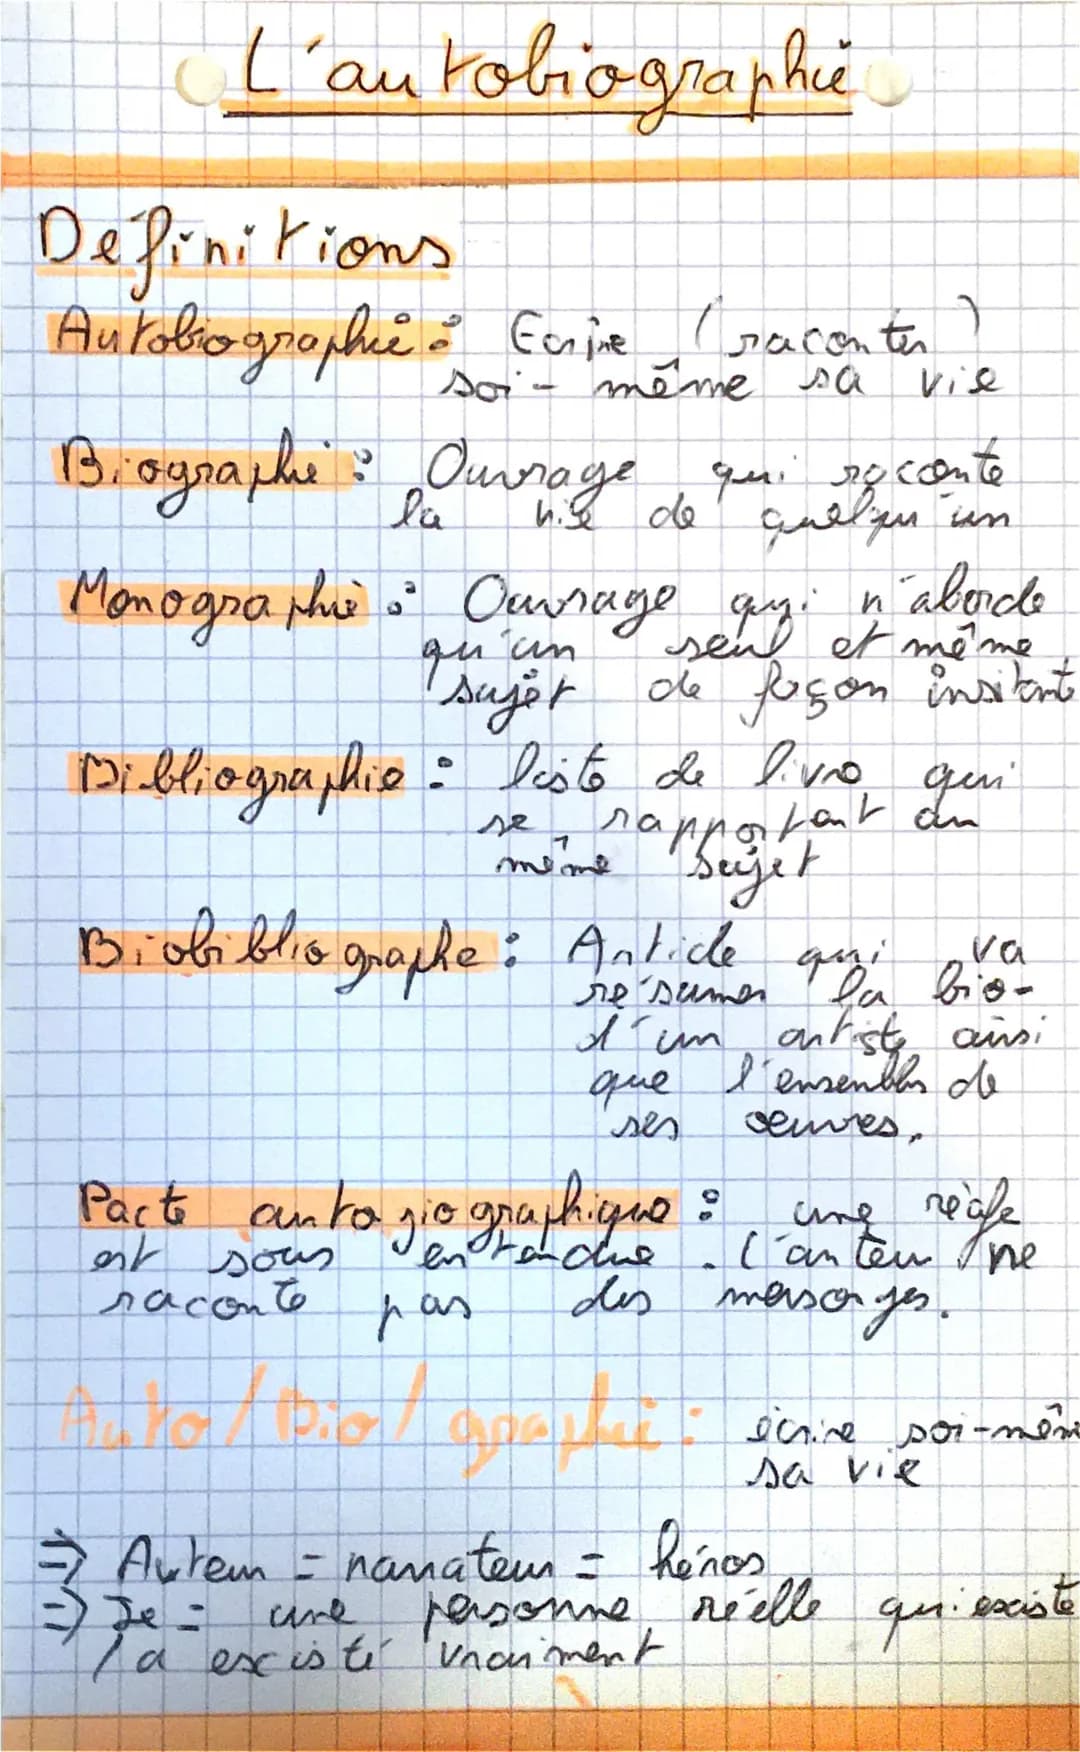 L'autobiographie
Définitions
Autobiographie : Ecrire (raconter)
soi-même sa vie
Biographie : Ouvrage qui raconte
la vie de quelqu'un
Monographie : Ouvrage qui n'aborde
qu'un seul et même
sujet de façon
Bibliographie : liste de livre qui
se rapportant au
même sujet
Biobibliographe : Article qui va
résumer la bio-
d'un artiste ainsi
que l'ensemble de
ses oeuvres.
Pacte autogiographique : une règle
est sous entendue. L'auteur ne
raconte pas des mensonges.
Auto/Bio/graphie : écrire soi-même
sa vie
⇒ Auteur = narrateur = héros
⇒ Je = une personne réelle qui existe
/a existé vraiment